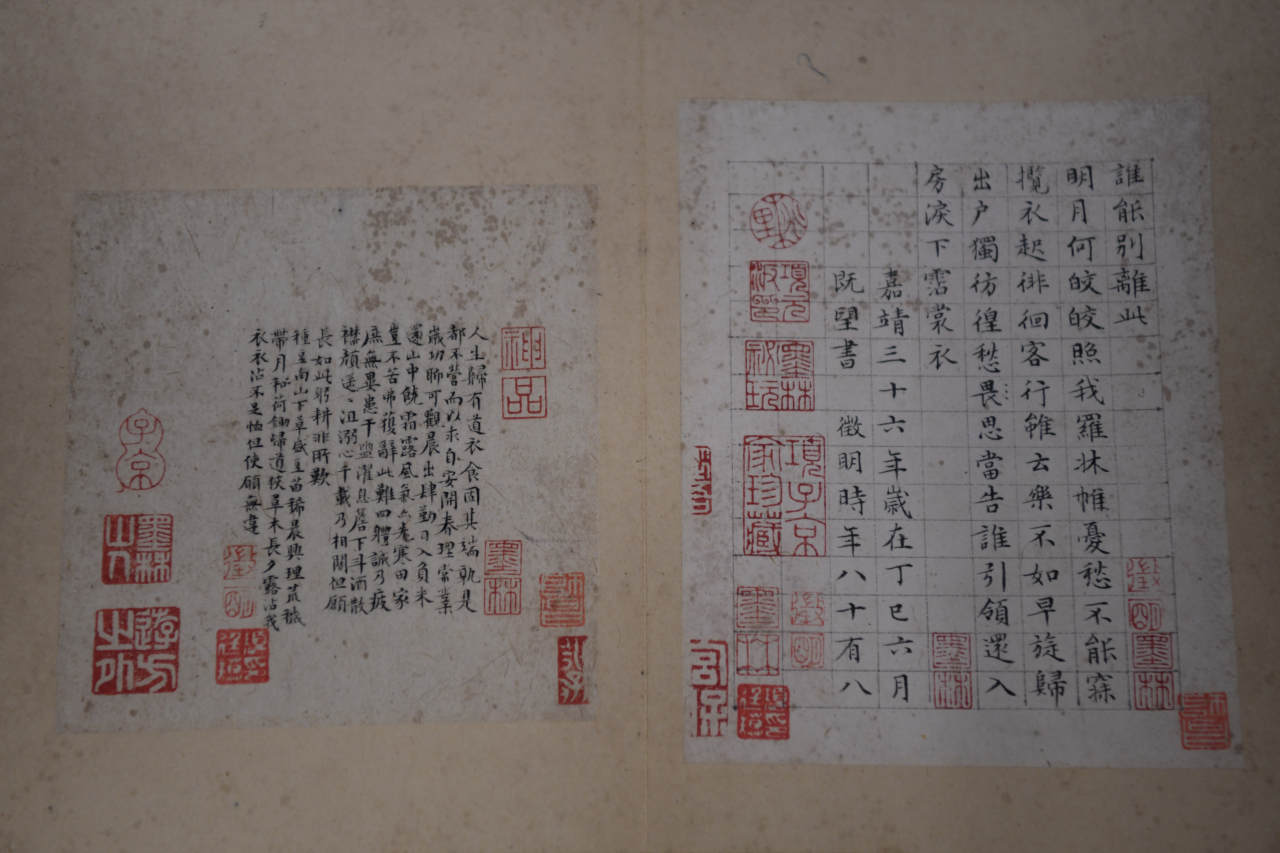 誰能別離此
明月何皎皎照我羅牀帷憂愁不能寐
攬衣起徘徊客行雖云樂不如早旋歸
出户獨彷徨愁畏思當告誰引領還入
房淚下霑裳衣
嘉靖三十六年歲在丁巳六月
既望書 徵明時年八十有八
徵明
墨林
墨林
桃里
項元汴印
墨林祕玩
項子京家珍藏
徵明
墨林
神品
墨林
人生歸有道衣食固其端孰是
都不營而以求自安開春理常業
歲功聊可觀晨出肆勤日入負禾
還山中饒霜露風氣亦先寒田家
豈不苦弗獲辭此難四體誠乃疲
庶無異患干盥濯息簷下斗酒散
襟顏遙〻沮溺心千載乃相關但願
長如此躬耕非所歎
種豆南山下草盛豆苗稀晨興理荒穢
帶月和荷鋤歸道狹草木長夕露沾我
衣衣沾不足惜但使願無違
徵明
子京
墨林山人
游方之外